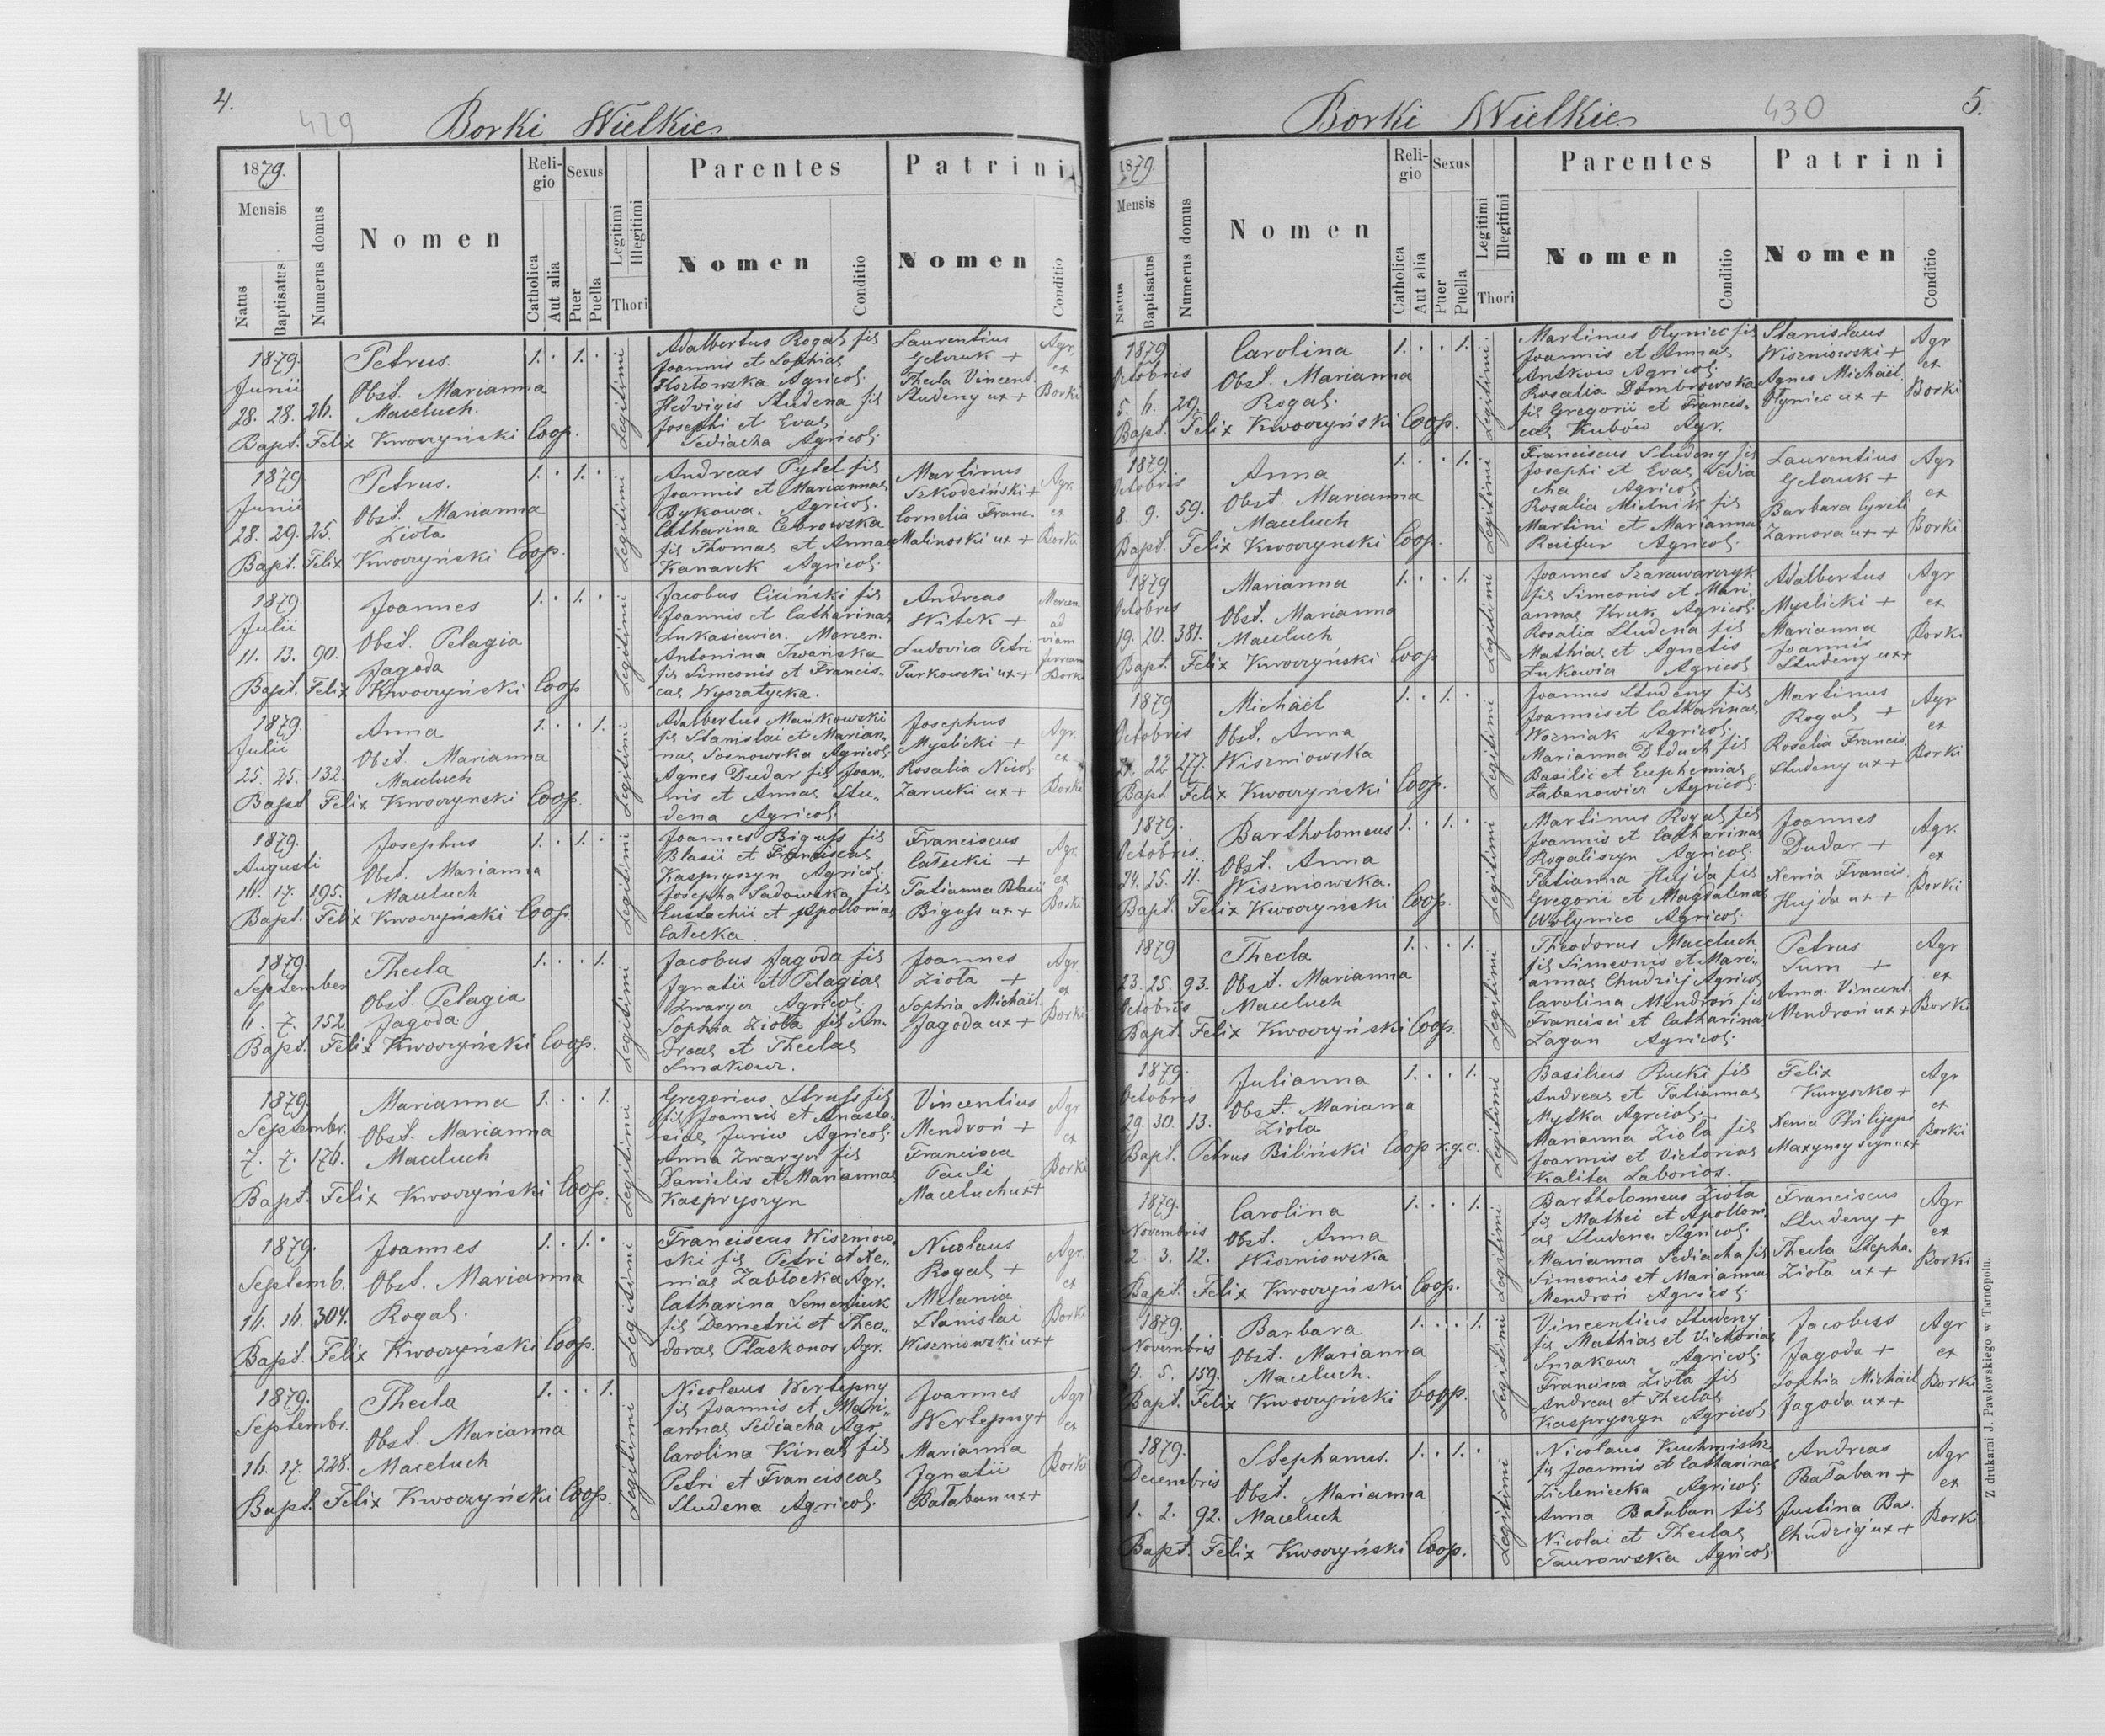 4.
429
Borki Wielkie
1879.
Mensis
Natus
Baptisatus
Numerus domus
Nomen
Religio
Catholica
Aut alia
Sexus
Puer
Puella
Legitimi
Illegitimi
Thori
Parentes
Nomen
Conditio
Patrini
Nomen
Conditio
1879.
Junii
28. 28. 26.
Petrus.
Obst. Marianna
Maceluch.
Bapt. Felix Kwoczyński Coop.
1. . 1. .
Legitimi
Adalbertus Rogal fil
Joannis et Sophiae
Kozłowska Agricol.
Hedvigis Studena fil
Josephi et Evae
Sediacha Agricol.
Laurentius
Gelczuk +
Thecla Vincent.
Studeny ux +
Agr.
ex
Borki
1879
Junii
28. 29. 25.
Petrus.
Obst. Marianna
Ziota
Bapt. Felix Kwoczyński Coop.
1. . 1. .
Legitimi
Andreas Pytel fil
Joannis et Mariannae
Bykowa. Agricol.
Catharina Cebrowska
fil Thomae et Annae
Kanarek Agricol.
Martinus
Szkodziński +
Cornelia Franc.
Malinoski ux +
Agr.
ex
Borki
1879.
Julii
11. 13. 90.
Joannes
Obst. Pelagia
Jagoda
Bapt. Felix Kwoczyński Coop.
1. . 1. .
Legitimi
Jacobus Ciciński fil
Joannis et Catharinae
Łukasiewicz. Mercen.
Antonina Iwańska
fil Simeonis et Francis-
cae Wyszatycka.
Andreas
Witek +
Ludovica Petri
Turkowski ux +
Mercen.
ad
viam
ferream
Borki
1879.
Julii
25. 25. 132.
Anna
Obst. Marianna
Maceluch
Bapt Felix Kwoczynski Coop.
1. . . 1.
Legitimi
Adalbertus Mańkowski
fil Stanislai et Marian-
nae Sosnowska Agricol.
Agnes Dudar fil Joan-
nis et Annae Stu-
dena Agricol.
Josephus
Myslicki +
Rosalia Nicol.
Zarucki ux +
Agr.
ex
Borki
1879.
Augusti
16. 17. 195.
Josephus
Obst. Marianna
Maceluch
Bapt. Felix Kwoczyński Coop.
1. . 1. .
Legitimi
Joannes Biguss fil
Blasii et Franciscae
Kaspryszyn Agricol.
Josepha Sadowska fil
Eustachii et Apolloniae
Całecka.
Franciscus
Całecki +
Tatianna Blasii
Biguss ux +
Agr.
ex
Borki
1879.
September
6. 7. 152.
Thecla
Obst. Pelagia
Jagoda.
Bapt. Felix Kwoczyński Coop.
1. . . 1.
Legitimi
Jacobus Jagoda fil
Ignatii et Pelagiae
Zwarycz Agricol.
Sophia Ziota fil An-
dreae et Theclae
Smakouz.
Joannes
Ziota +
Sophia Michaël.
Jagoda ux +
Agr.
ex
Borki
1879.
Septembr.
7. 7. 176.
Marianna
Obst. Marianna
Maceluch
Bapt. Felix Kwoczyński Coop.
1. . . 1.
Legitimi
Gregorius Struss fil
fil Joannis et Anasta-
siae Juriw Agricol.
Anna Zwarycz fil
Danielis et Mariannae
Kaspryszyn
Vincentius
Mendroń +
Francisca
Pauli
Maceluch ux +
Agr
ex
Borki
1879.
Septemb.
16. 16. 304.
Joannes
Obst. Marianna
Rogal.
Bapt. Felix Kwoczyński Coop.
1. . 1. .
Legitimi
Franciscus Wiszniow-
ski fil Petri et Xe-
niae Zabłocka Agr.
Catharina Semeniuk
fil Demetrii et Theo-
dorae Płaskonos Agr.
Nicolaus
Rogal +
Melania
Stanislai
Wiszniowski ux +
Agr.
ex
Borki
1879.
Septembr.
16. 17. 228.
Thecla
Obst. Marianna
Maceluch
Bapt. Felix Kwoczyński Coop.
1. . . 1.
Legitimi
Nicolaus Wertepny
fil Joannis et Mari-
annae Sediacha Agr
Carolina Kinal fil
Petri et Franciscae
Studena Agricol.
Joannes
Wertepny +
Marianna
Ignatii
Bałaban ux +
Agr
ex
Borki
5.
430
Borki Wielkie
1879.
Mensis
Natus
Baptisatus
Numerus domus
Nomen
Religio
Catholica
Aut alia
Sexus
Puer
Puella
Legitimi
Illegitimi
Thori
Parentes
Nomen
Conditio
Patrini
Nomen
Conditio
1879
Octobris
5. 6. 29.
Carolina
Obst. Marianna
Rogal.
Bapt. Felix Kwoczyński Coop.
1. . . 1.
Legitimi.
Martinus Olyniec fil
Joannis et Annae
Antkow Agricol.
Rosalia Dombrowska
fil Gregorii et Francis-
cae Kubów Agr.
Stanislaus
Wiszniowski +
Agnes Michaël
Olyniec ux +
Agr
ex
Borki
1879.
Octobris
8. 9. 59.
Anna
Obst. Marianna
Maceluch
Bapt. Felix Kwoczynski Coop.
1. . . 1.
Legitimi
Franciscus Studeny fil
Josephi et Evae Sedia
cha Agricol.
Rosalia Mielnik fil
Martini et Mariannae
Agricol.
Laurentius
Gelczuk +
Barbara Cyrili
Zamora ux +
Agr
ex
Borki
1879
Octobris
19. 20. 381.
Marianna
Obst. Marianna
Maceluch
Bapt. Felix Kwoczyński Coop
1. . . 1.
Legitimi
Joannes Szarawarczyk
fil Simeonis et Mari-
annae Kruk Agricol.
Rosalia Studena fil
Mathiae et Agnetis
Łukowicz Agricol
Adalbertus
Myslicki +
Marianna
Joannis
Studeny ux +
Agr
ex
Borki
1879
Octobris
21. 22 277.
Michaël
Obst. Anna
Wiszniowska
Bapt Felix Kwoczyński Coop.
1. . 1. .
Legitimi
Joannes Studeny fil
Joannis et Catharinae
Wozniak Agricol.
Marianna Diduch fil
Basilii et Euphemiae
Labanowicz Agricol.
Martinus
Rogal +
Rosalia Francis.
Studeny ux +
Agr
ex
Borki
1879.
Octobris.
24. 25. 11.
Bartholomeus
Obst. Anna
Wiszniowska.
Bapt. Felix Kwoczyński Coop.
1. . 1. .
Legitimi
Martinus Rogal fil
Joannis et Catharinae
Rogaliszyn Agricol.
Tatianna Hujda fil
Gregorii et Magdalenae
Wołyniec Agricol.
Joannes
Dudar +
Xenia Francis.
Hujda ux +
Agr.
ex
Borki
1879
23. 25. 93.
Octobris
Thecla
Obst. Marianna
Maceluch
Bapt. Felix Kwoczyński Coop.
1. . . 1.
Legitimi
Theodorus Maceluch
fil Simeonis et Mari-
annae Chudzij Agricol
Carolina Mendroń fil
Francisci et Catharinae
Łagan Agricol.
Petrus
Sum +
Anna Vincent.
Mendroń ux +
Agr
ex
Borki
1879.
Octobris
29. 30. 13.
Julianna
Obst. Marianna
Ziota
Bapt. Petrus Biliński Coop r.g.c.
1. . . 1.
Legitimi
Basilius Rucki fil
Andreae et Tatiannae
Mytka Agricol.
Marianna Ziota fil
Joannis et Victoriae
Kalita Laborios.
Felix
Kuryszko +
Xenia Philippi
Maxymyszyn ux +
Agr
ex
Borki
1879.
Novembris
2. 3. 12.
Carolina
Obst. Anna
Wiszniowska
Bapt. Felix Kwoczyński Coop.
1. . . 1.
Legitimi
Bartholomeus Ziota
fil Mathei et Apolloni
ae Studena Agricol.
Marianna Sediacha fil
Simeonis et Mariannae
Mendroń Agricol.
Franciscus
Studeny +
Thecla Stepha.
Ziota ux +
Agr
ex
Borki
1879.
Novembris
4. 5. 159.
Barbara
Obst. Marianna
Maceluch.
Bapt. Felix Kwoczyński Coop.
1. . . 1.
Legitimi
Vincentius Studeny
fil Mathiae et Victoriae
Smakouz Agricol.
Francisca Ziota fil
Andreae et Theclae
Kaspryszyn Agricol.
Jacobus
Jagoda +
Sophia Michaël
Jagoda ux +
Agr
ex
Borki
1879.
Decembris
1. 2. 92.
Stephanus.
Obst. Marianna
Maceluch
Bapt. Felix Kwoczyński Coop.
1. . 1. .
Legitimi
Nicolaus Kuchmistrz
fil Joannis et Catharinae
Zieleniecka Agricol.
Anna Bałaban fil
Nicolai et Theclae
Taurowska Agricol.
Andreas
Bałaban +
Justina Bas.
Chudzij ux +
Agr
ex
Borki
Z drukarni J. Pawłowskiego w Tarnopolu.